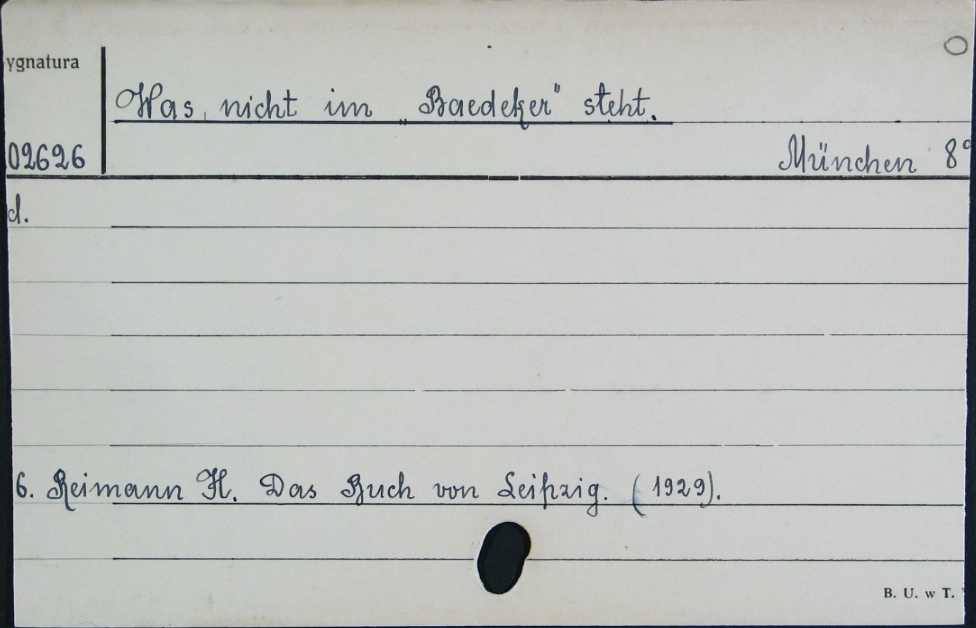 ygnatura
Was nicht im „Baedeker" steht.
02626
München 8°
d.
6. Reimann H. Das Buch von Leipzig. (1929).
B. U. w T.